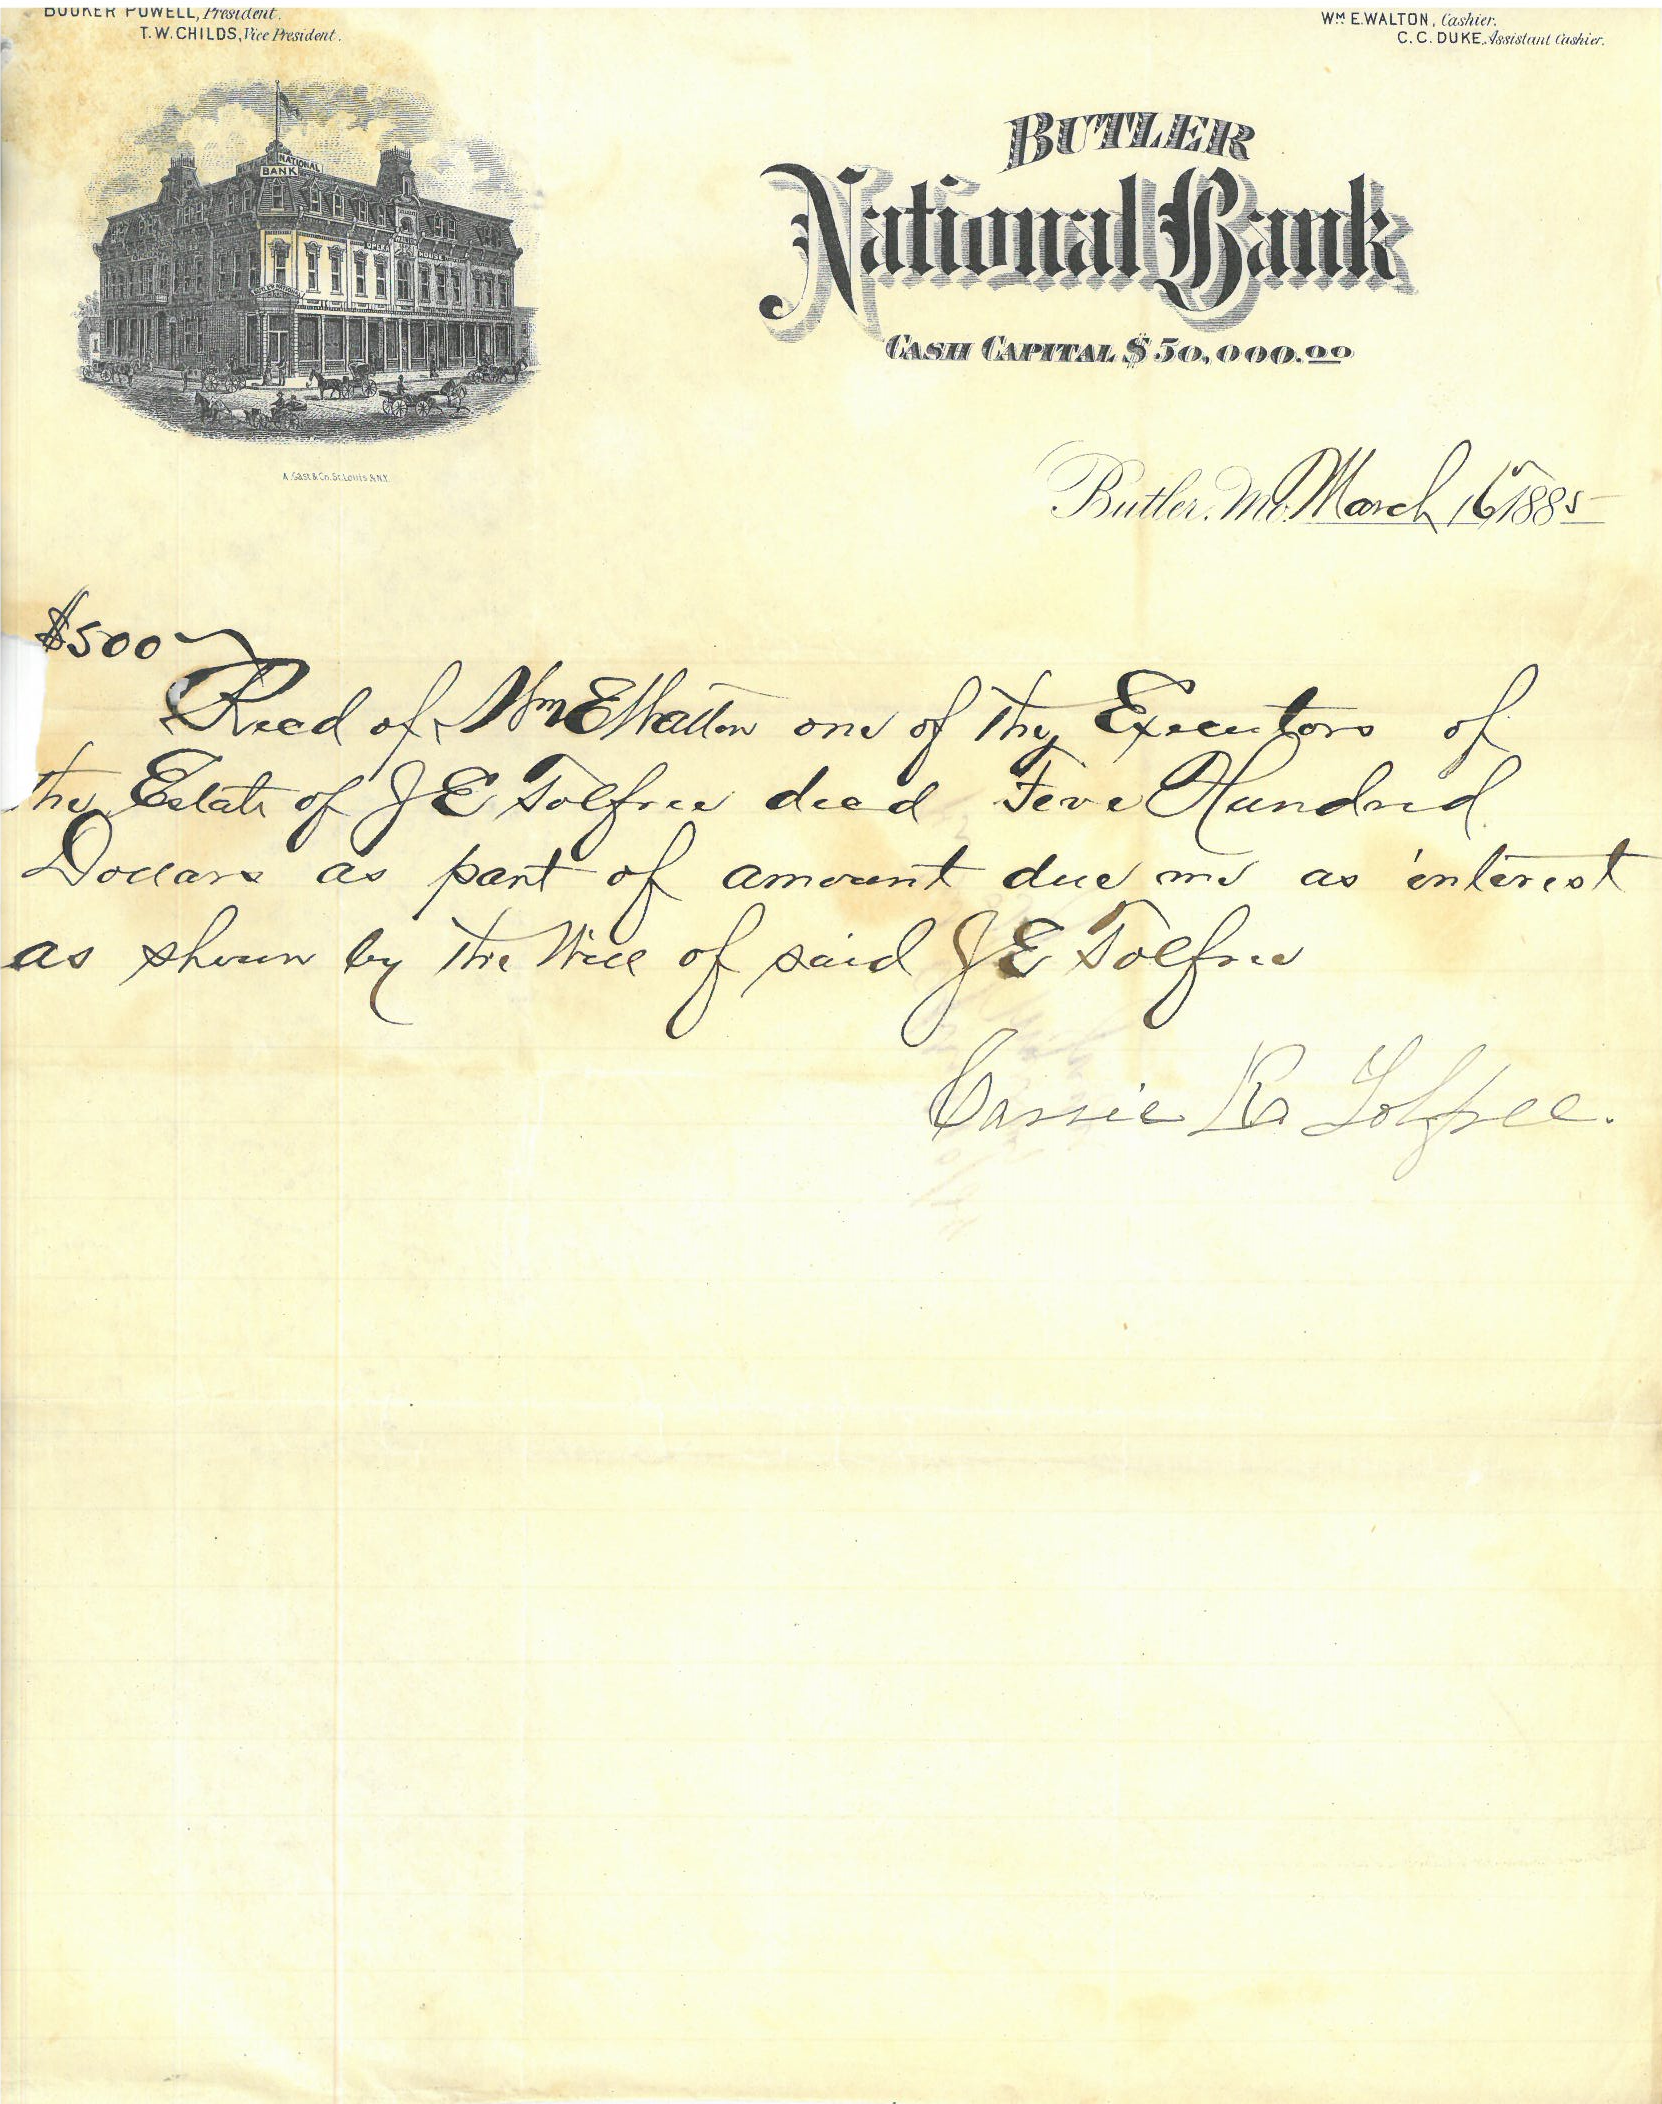 BOOKER POWELL, President.
T. W. CHILDS, Vice President.
WM E. WALTON, Cashier.
C. C. DUKE, Assistant Cashier.
BUTLER NATIONAL
BANK
OPERA HOUSE
A. Gast & Co. St. Louis & N.Y.
BUTLER
National Bank
CASH CAPITAL $50,000.00
Butler, Mo. March 16th 1885
$500
Recd of Wm E Walton one of the Executors of
the Estate of J E Tolfree decd Five Hundred
Dollars as part of amount due me as interest
as shown by the Will of said J E Tolfree
Carrie R. Tolfree.